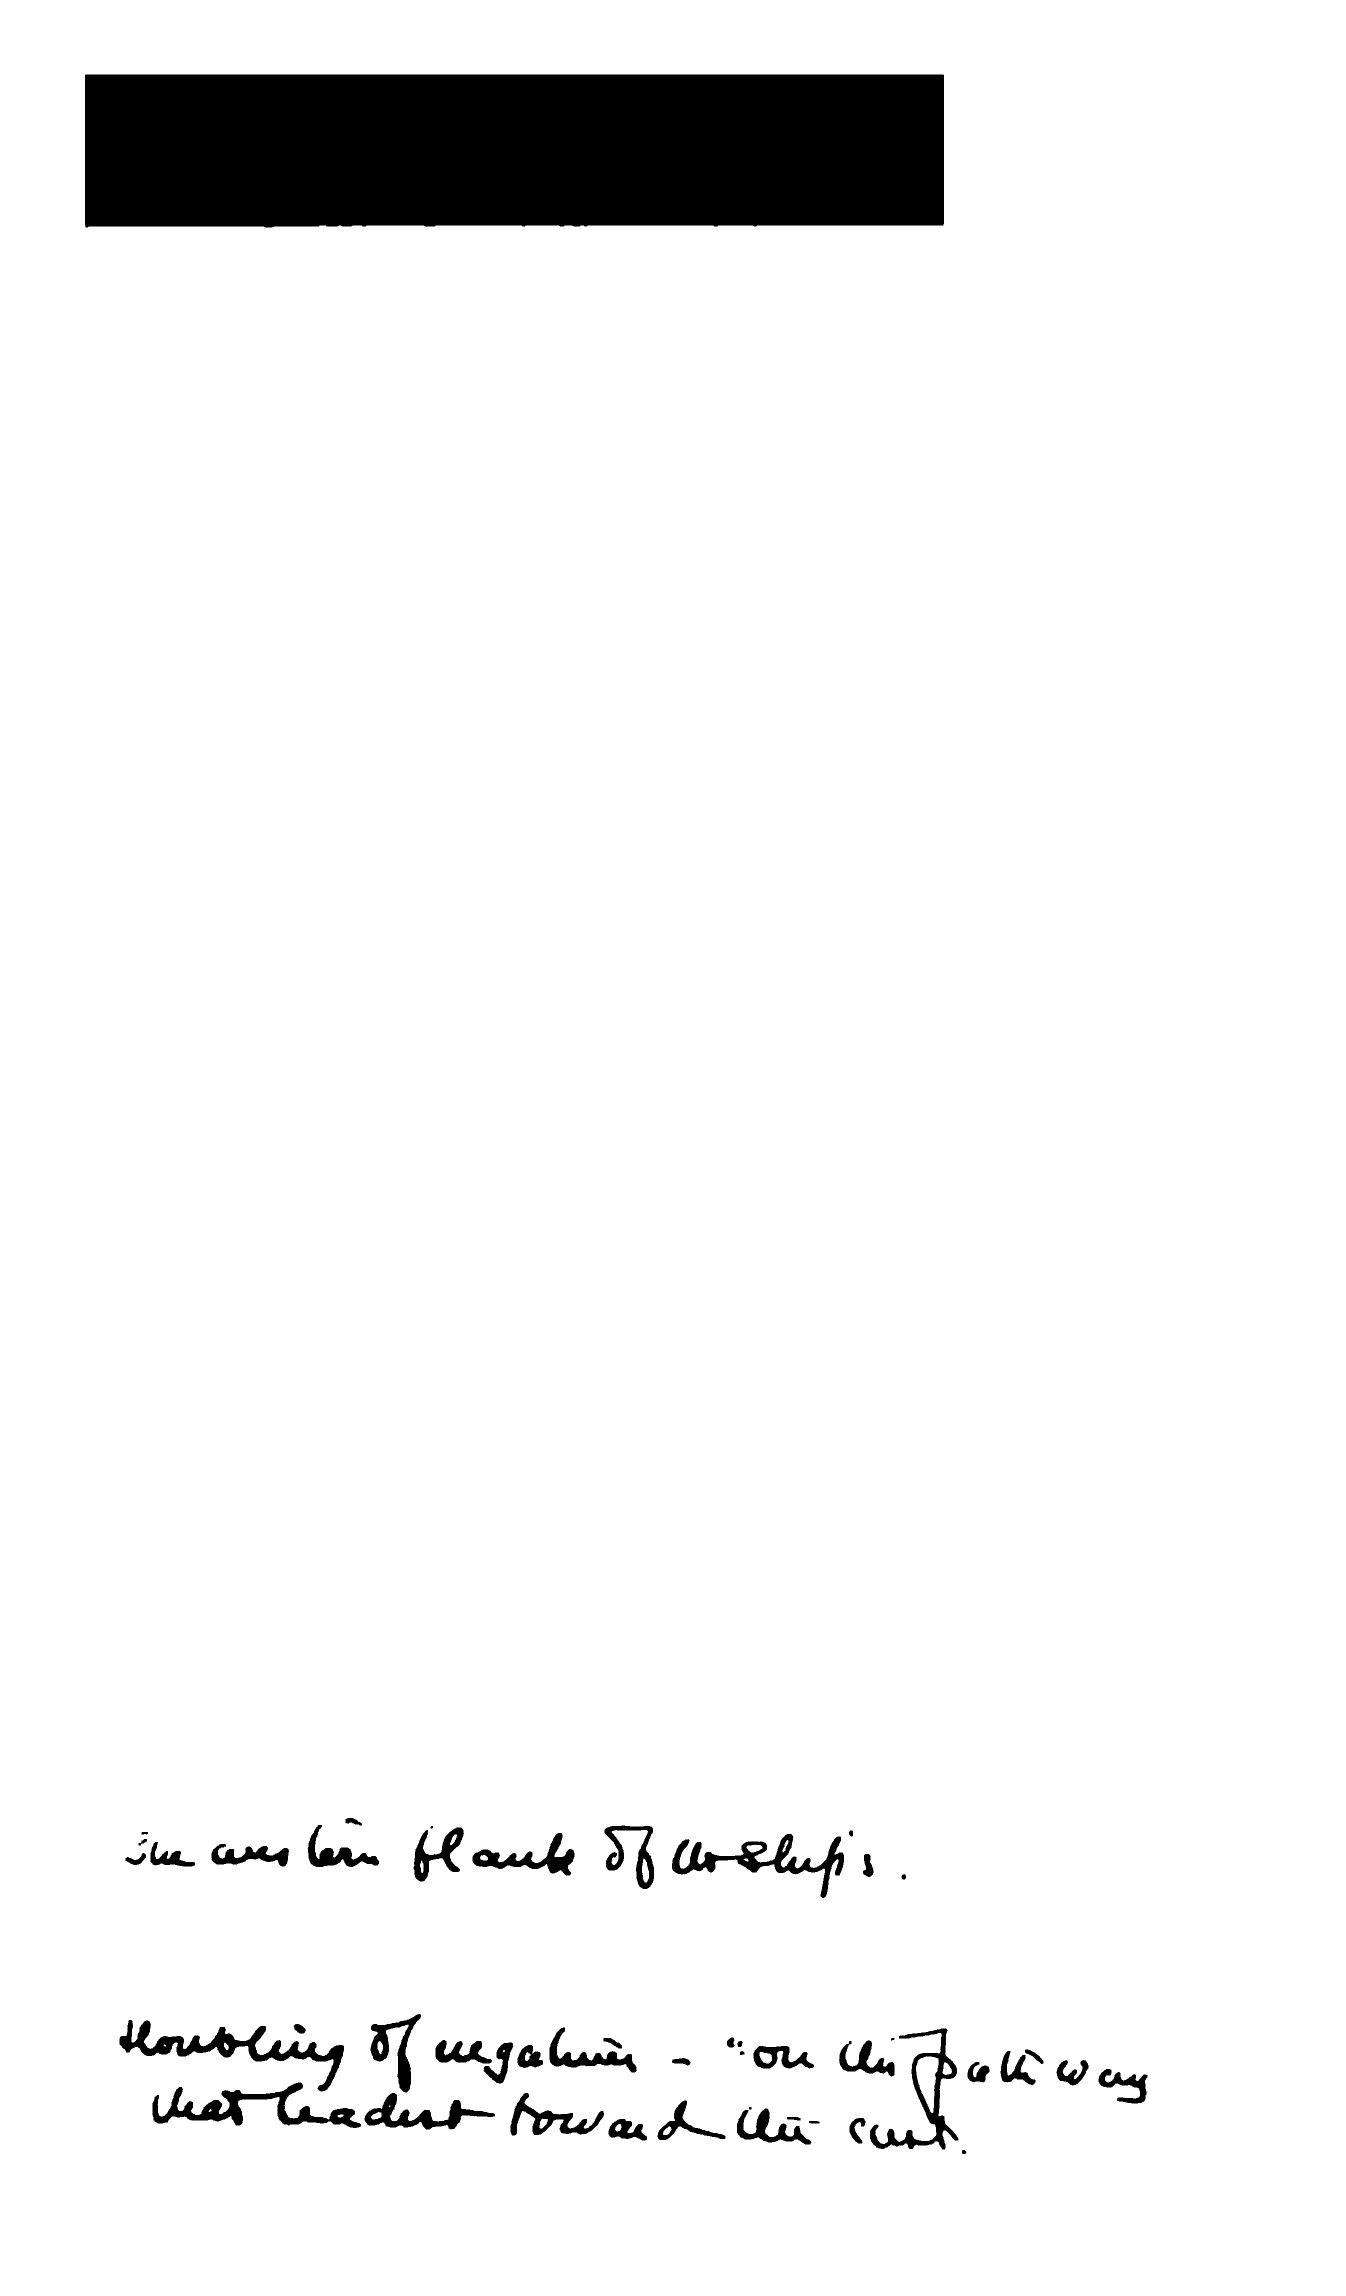 the western flank of the ships.
doubling of negatives - "on the pathway
that leadest toward the east.